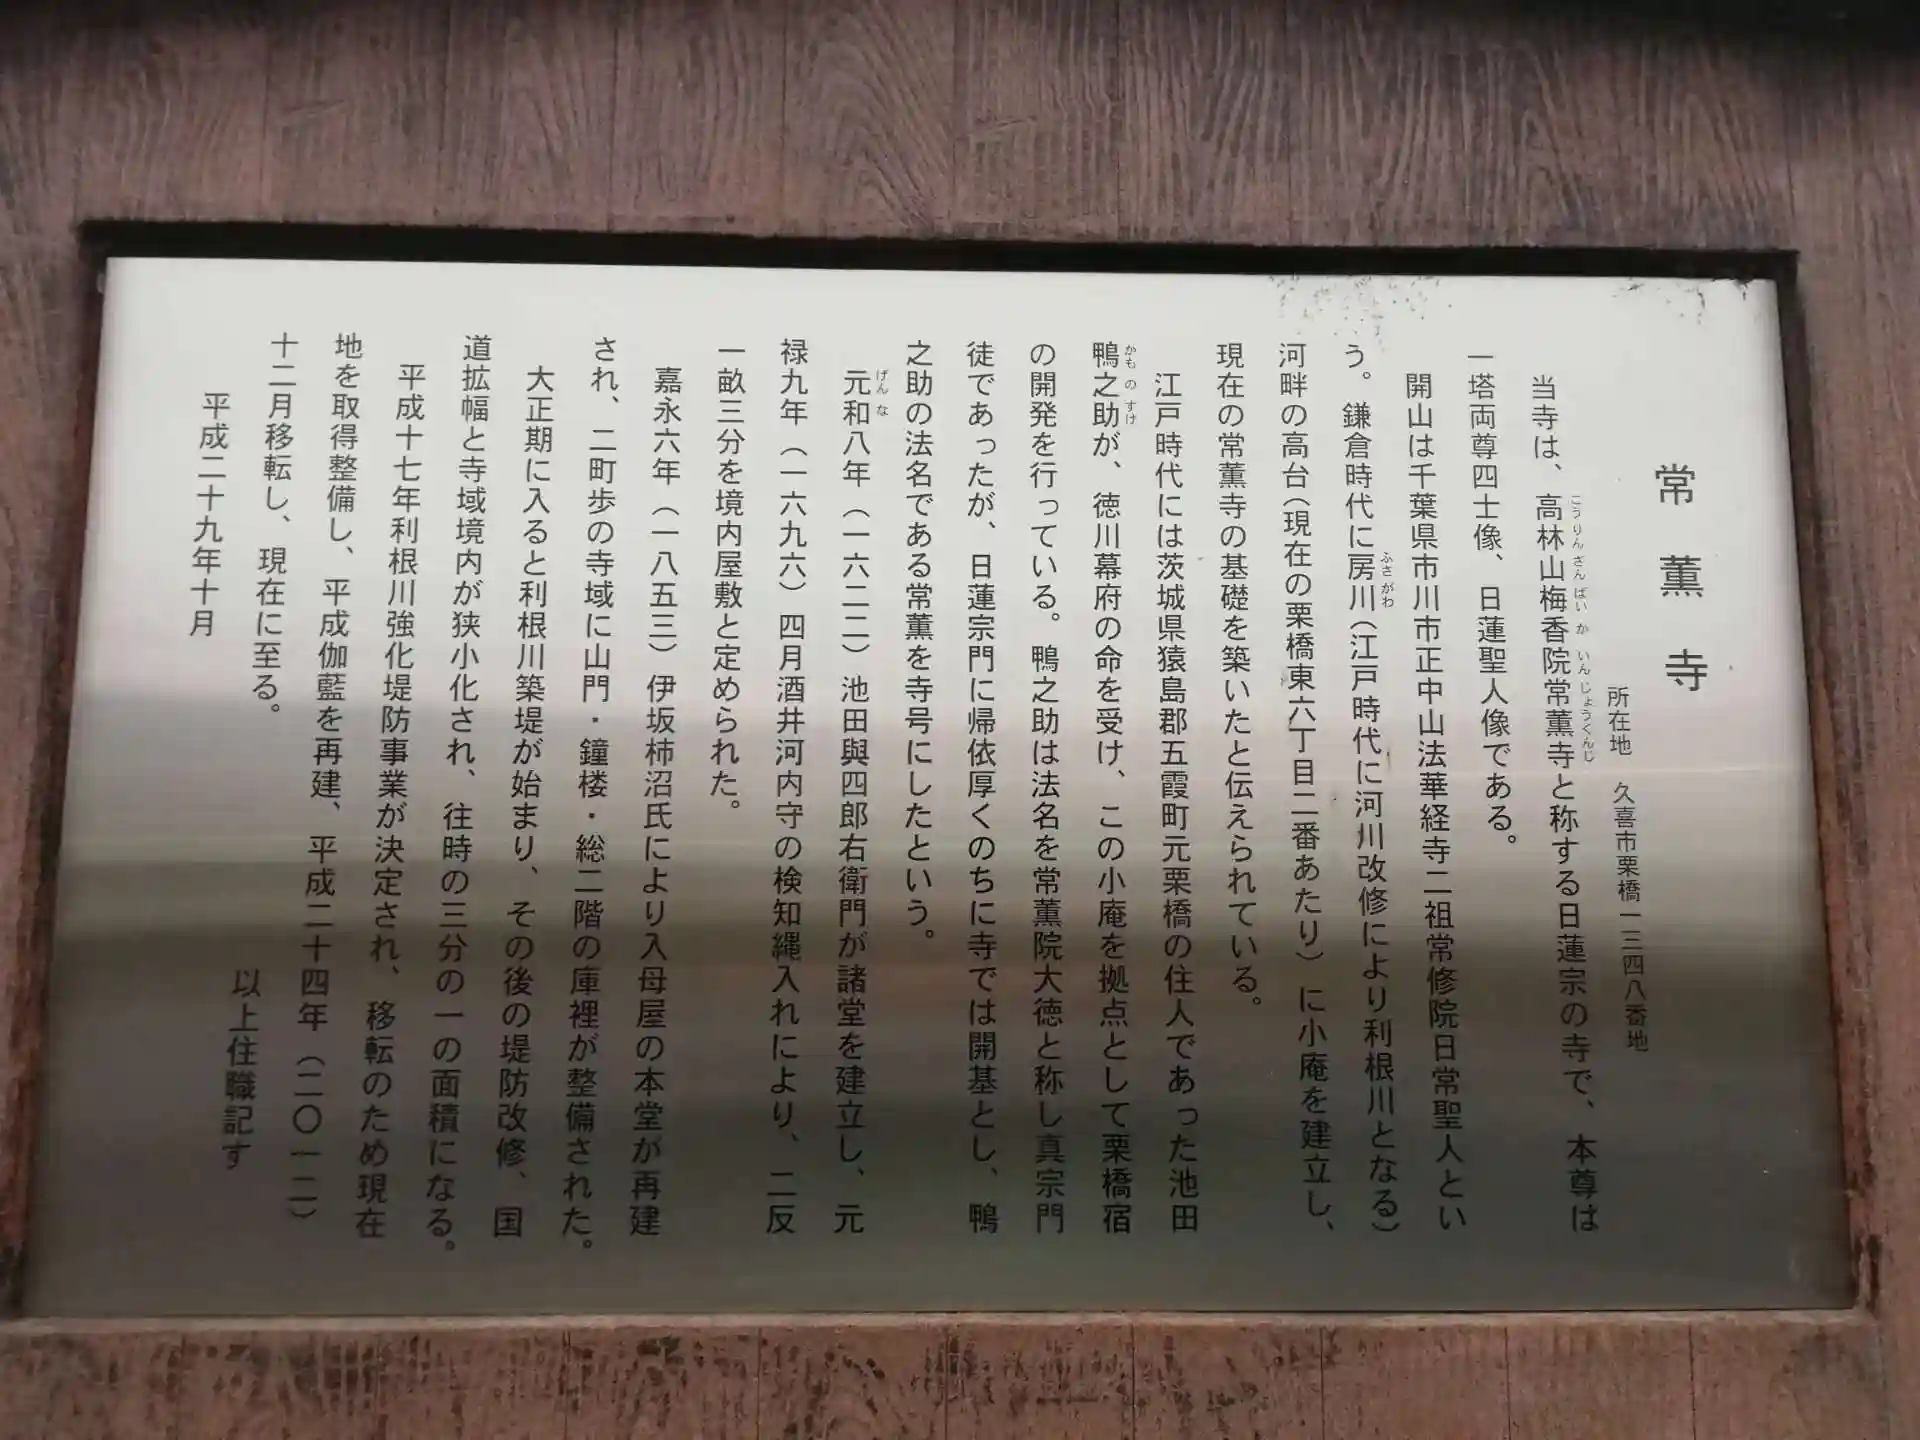 常薫寺
所在地　久喜市栗橋一三四八番地
当寺は、高林山梅香院常薫寺と称する日蓮宗の寺で、本尊は
こうりんざんばいかいんじょうくんじ
一塔両尊四士像、日蓮聖人像である。
開山は千葉県市川市正中山法華経寺二祖常修院日常聖人とい
う。鎌倉時代に房川（江戸時代に河川改修により利根川となる）
ふさがわ
河畔の高台（現在の栗橋東六丁目二番あたり）に小庵を建立し、
現在の常薫寺の基礎を築いたと伝えられている。
江戸時代には茨城県猿島郡五霞町元栗橋の住人であった池田
鴨之助が、徳川幕府の命を受け、この小庵を拠点として栗橋宿
かものすけ
の開発を行っている。鴨之助は法名を常薫院大徳と称し真宗門
徒であったが、日蓮宗門に帰依厚くのちに寺では開基とし、鴨
之助の法名である常薫を寺号にしたという。
元和八年（一六二二）池田與四郎右衛門が諸堂を建立し、元
げんな
禄九年（一六九六）四月酒井河内守の検知縄入れにより、二反
一畝三分を境内屋敷と定められた。
嘉永六年（一八五三）伊坂柿沼氏により入母屋の本堂が再建
され、二町歩の寺域に山門・鐘楼・総二階の庫裡が整備された。
大正期に入ると利根川築堤が始まり、その後の堤防改修、国
道拡幅と寺域境内が狭小化され、往時の三分の一の面積になる。
平成十七年利根川強化堤防事業が決定され、移転のため現在
地を取得整備し、平成伽藍を再建、平成二十四年（二〇一二）
十二月移転し、現在に至る。
以上住職記す
平成二十九年十月